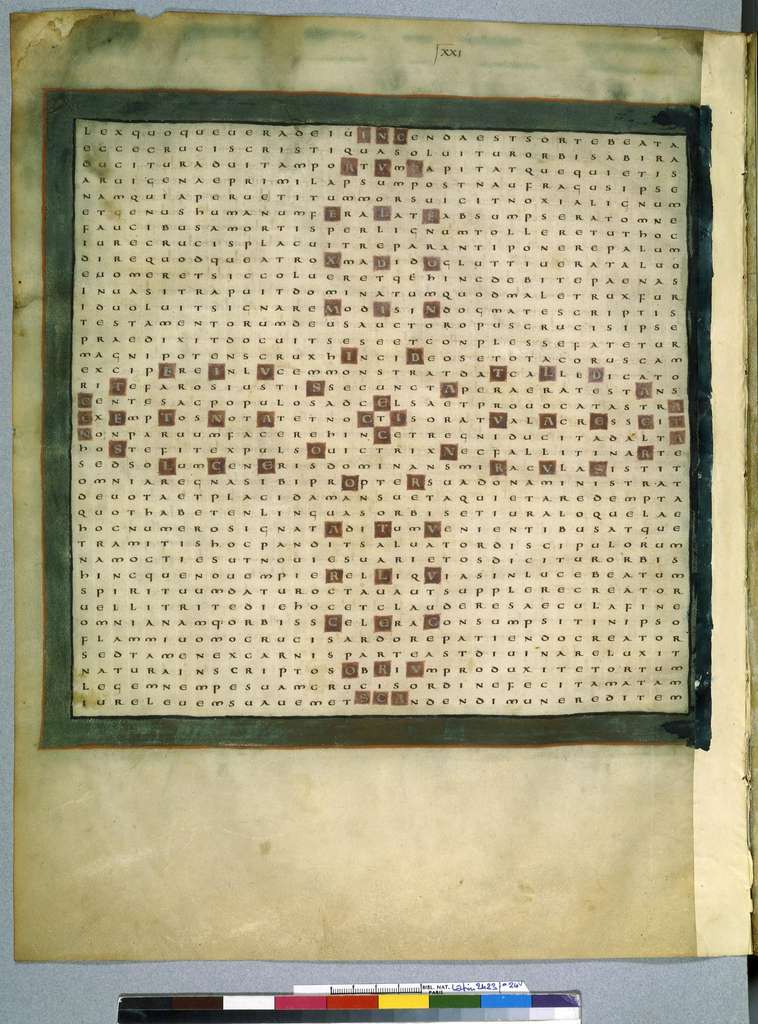 LEXQUOQUEUERADEIUINGENDAESTSORTEBEATA
ECCECRUCISCRISTIQUASOLUITURORBISABIRA
DUCITURADUITAMPORTUMCAPITATQUEQUIETIS
AURIGENAEPRIMILAPSUMPOSTNAUFRAGUSIPSE
NAMQUIAPERUETITUMMORSUICITNOXIALIGNUM
ETGENUSHUMANUMFERALATEABSUMPSERATOMNE
FAUCIBUSAMORTISPERLIGNUMTOLLERETUTHOC
IURECRUCISPLACUITREPARANTIPONEREPALUM
DIREQUODQUEATROXMADIDOGLUTTIUERATALUO
EUOMERETSICCOLUERETQEHINCDEBITEPAENAS
INUASITRAPUITDOMINATUMQUODMALETRUXFUR
IDUOLUITSIGNAREMODISINDOGMATESCRIPTIS
TESTAMENTORUMDEUSAUCTOROPUSCRUCISIPSE
PRAEDIXITDOCUITSESEETCONPLESSEFATETUR
MAGNIPOTENSCRUXHINCIDEOSETOTACORUSCAM
EXCIPEREINLUCEMMONSTRATDATCALLEDICATO
RITEFAROSIUSTISSECUNCTAPERAERATESTANS
GENTESACPOPULOSADCELSAETPROUOCATASTRA
EXEMPTOS
NONPARUUMFACEREHINCETREGNIDUCITADALTA
HOSTEFITEXPULSOUICTRIXNECFALLITINARTE
SEDSOLUMCENERISDOMINANSMIRACULASISTIT
OMNIAREGNASIBIPROPTERSUADONAMINISTRAT
DEUOTAETPLACIDAMANSUETAQUIETAREDEMPTA
QUOTHABETENLINGUASORBISETIURALOQUELAE
HOCNUMEROSIGNATADITUMUENIENTIBUSATQUE
TRAMITISHOCPANDITSALUATORDISCIPULORUM
NAMOCTIESUTNOUIESUARIETOSDICITURORBIS
HINCQUENOUEMPIERELLIQUIASINLUCEBEATUM
SPIRITUUMDATUROCTAUAUTSUPPLERECREATOR
UELLITRITEDIEHOCETCLAUDERESAECULAFINE
OMNIANAMQORBISSCELERACCONSUMPSITINIPSO
FLAMMIUOMOCRUCISARDOREPATIENDOCREATOR
SEDTAMENEXCARNISPARTEASTDIUINARELUXIT
NATURAINSCRIPTOSOBRIUMPRODUXITETORTUM
LEGEMNEMPESUAMCRUCISORDINEFECITAMATAM
IURELEUEMSUAUEMETSCANDENDIMUNEREDITEM
XXI
BIBL. NAT. PARIS Latin 2423 f° 24v